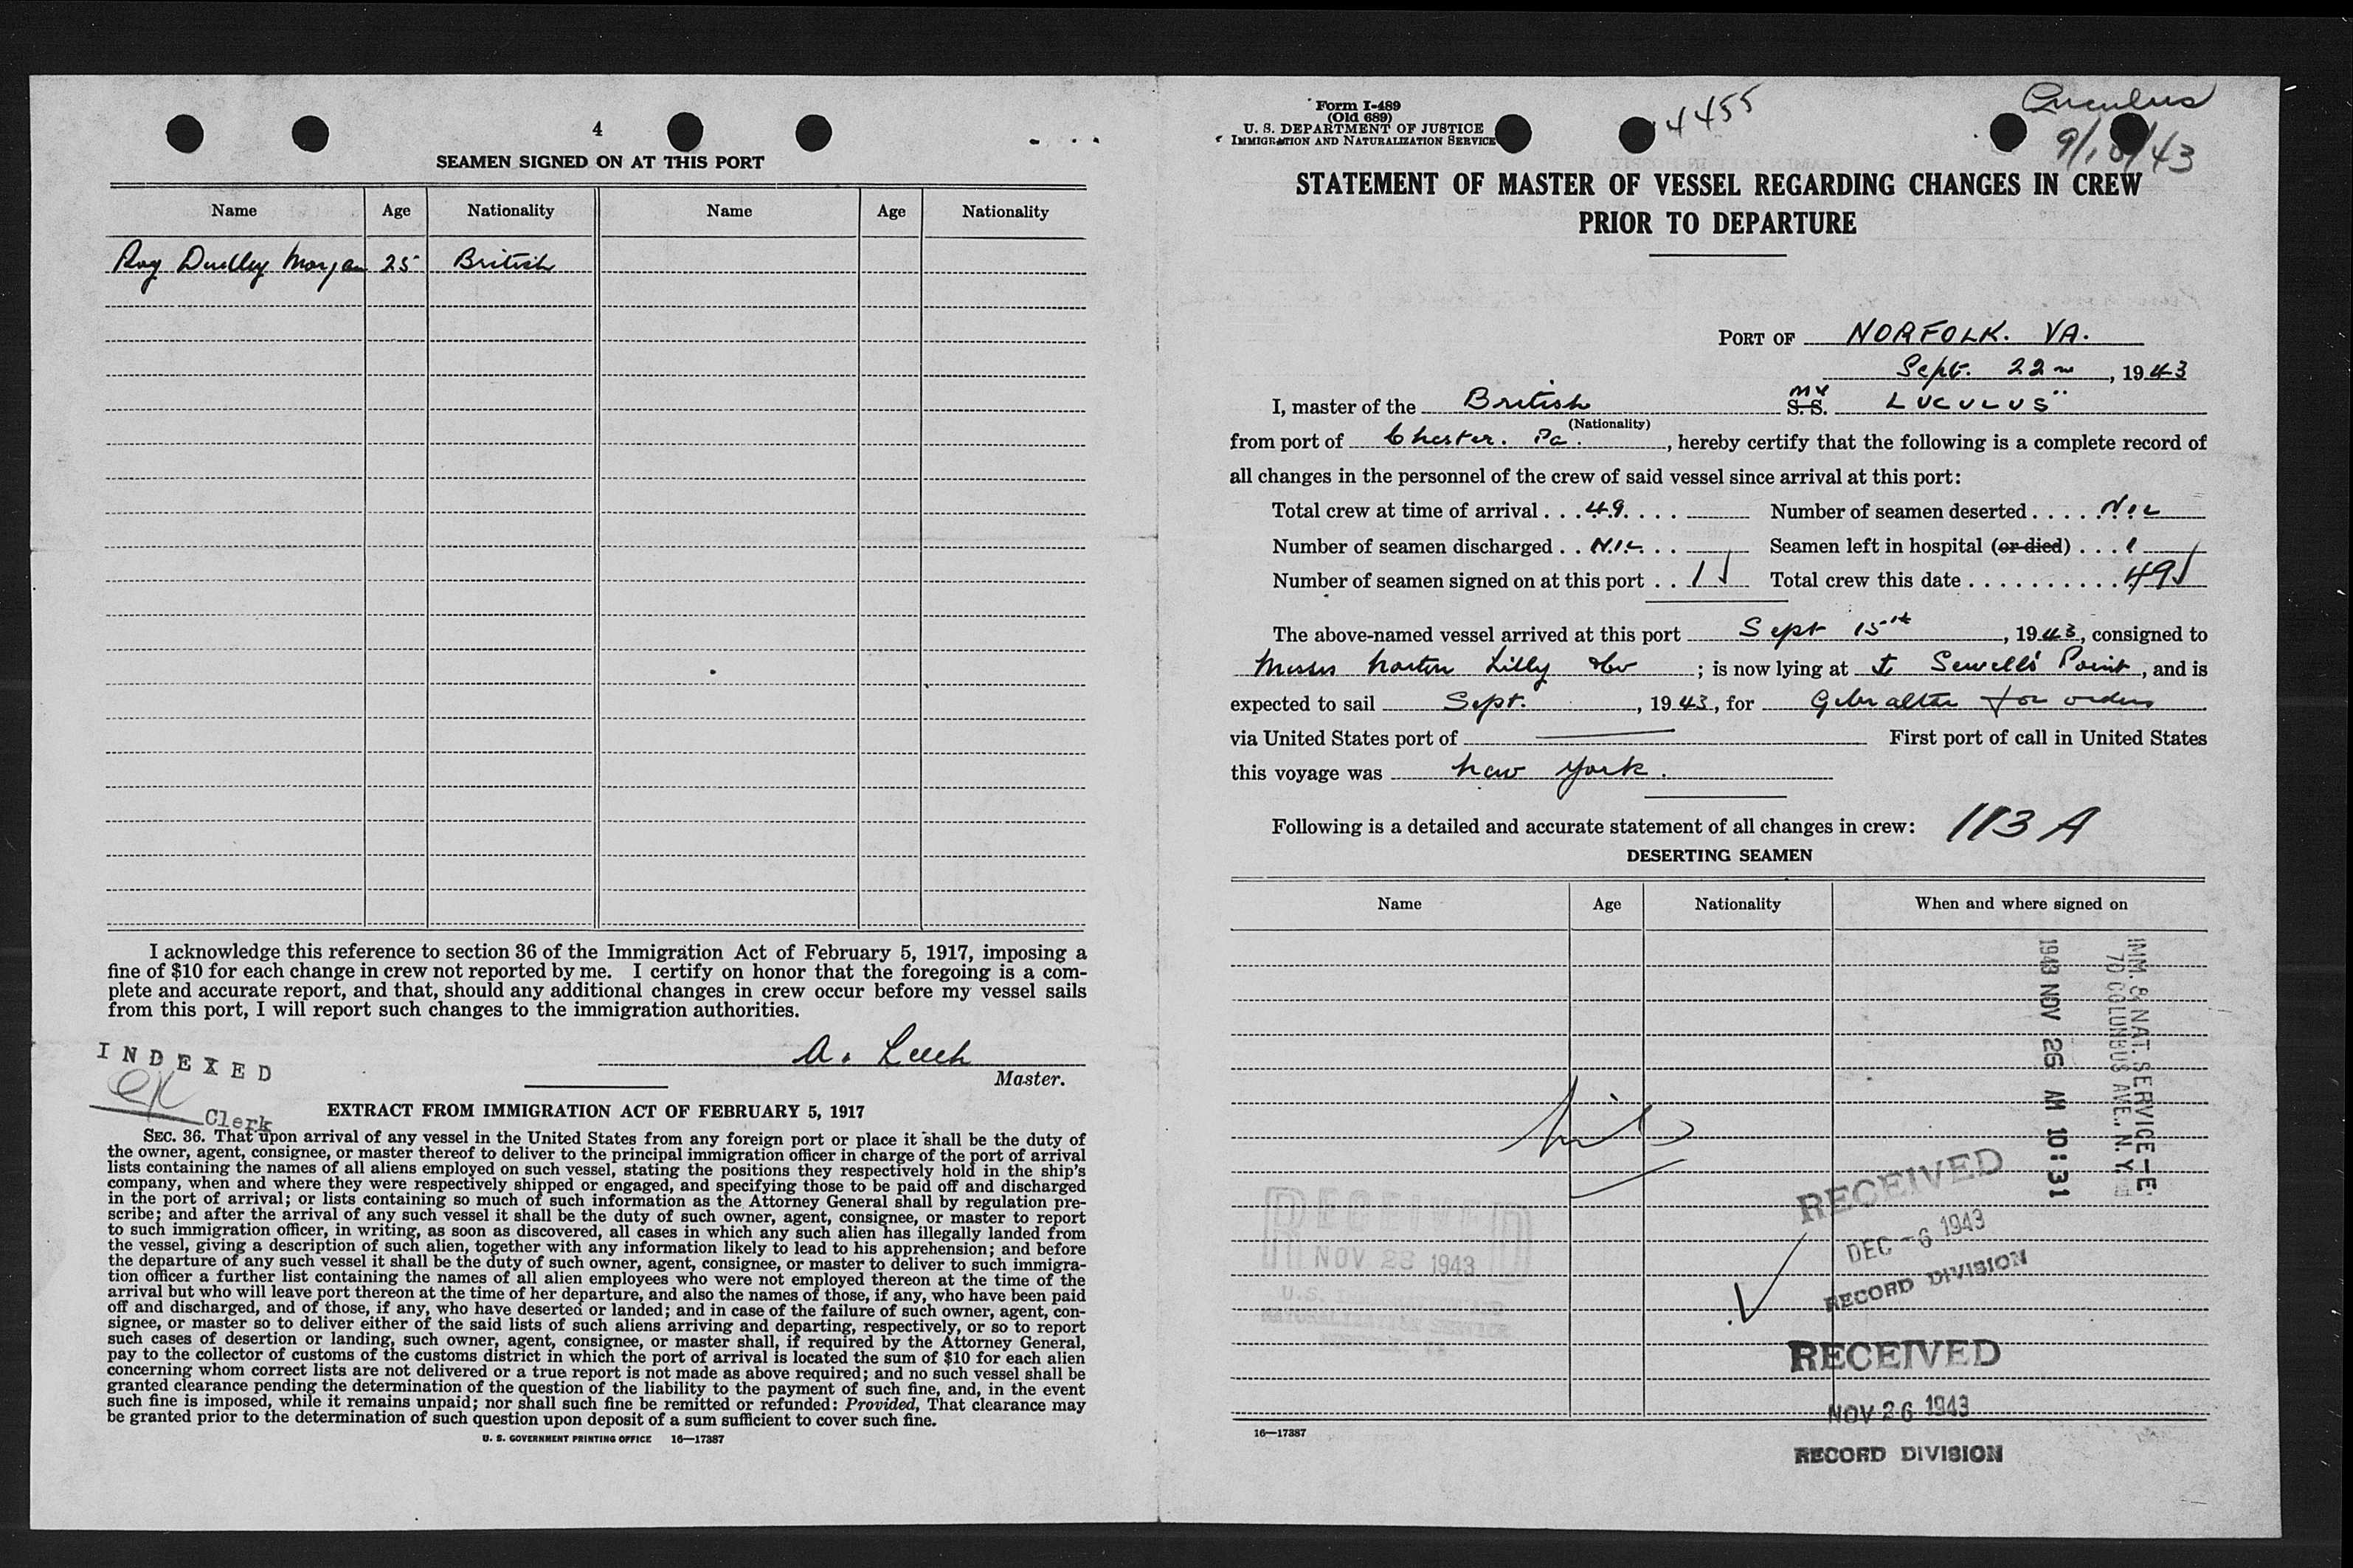 4
SEAMEN SIGNED ON AT THIS PORT
Name Age Nationality Name Age Nationality
Roy Dudley Morgan 25 British
I acknowledge this reference to section 36 of the Immigration Act of February 5, 1917, imposing a
fine of $10 for each change in crew not reported by me. I certify on honor that the foregoing is a com-
plete and accurate report, and that, should any additional changes in crew occur before my vessel sails
from this port, I will report such changes to the immigration authorities.
A. Leech
Master.
INDEXED
Clerk
EXTRACT FROM IMMIGRATION ACT OF FEBRUARY 5, 1917
SEC. 36. That upon arrival of any vessel in the United States from any foreign port or place it shall be the duty of
the owner, agent, consignee, or master thereof to deliver to the principal immigration officer in charge of the port of arrival
lists containing the names of all aliens employed on such vessel, stating the positions they respectively hold in the ship's
company, when and where they were respectively shipped or engaged, and specifying those to be paid off and discharged
in the port of arrival; or lists containing so much of such information as the Attorney General shall by regulation pre-
scribe; and after the arrival of any such vessel it shall be the duty of such owner, agent, consignee, or master to report
to such immigration officer, in writing, as soon as discovered, all cases in which any such alien has illegally landed from
the vessel, giving a description of such alien, together with any information likely to lead to his apprehension; and before
the departure of any such vessel it shall be the duty of such owner, agent, consignee, or master to deliver to such immigra-
tion officer a further list containing the names of all alien employees who were not employed thereon at the time of the
arrival but who will leave port thereon at the time of her departure, and also the names of those, if any, who have been paid
off and discharged, and of those, if any, who have deserted or landed; and in case of the failure of such owner, agent, con-
signee, or master so to deliver either of the said lists of such aliens arriving and departing, respectively, or so to report
such cases of desertion or landing, such owner, agent, consignee, or master shall, if required by the Attorney General,
pay to the collector of customs of the customs district in which the port of arrival is located the sum of $10 for each alien
concerning whom correct lists are not delivered or a true report is not made as above required; and no such vessel shall be
granted clearance pending the determination of the question of the liability to the payment of such fine, and, in the event
such fine is imposed, while it remains unpaid; nor shall such fine be remitted or refunded: Provided, That clearance may
be granted prior to the determination of such question upon deposit of a sum sufficient to cover such fine.
U. S. GOVERNMENT PRINTING OFFICE 16—17387
Form I-489
(Old 689)
U. S. DEPARTMENT OF JUSTICE
IMMIGRATION AND NATURALIZATION SERVICE
4455
9/18/43
STATEMENT OF MASTER OF VESSEL REGARDING CHANGES IN CREW
PRIOR TO DEPARTURE
PORT OF NORFOLK. VA.
Sept. 22, 1943
I, master of the British S.S. MV LUCULUS"
(Nationality)
from port of Chester. Pa., hereby certify that the following is a complete record of
all changes in the personnel of the crew of said vessel since arrival at this port:
Total crew at time of arrival . . . 49. . . . Number of seamen deserted . . . . . NIL
Number of seamen discharged . . NIL. . . Seamen left in hospital (or died) . . . 1
Number of seamen signed on at this port . . 1 Total crew this date . . . . . . . . . . 49
The above-named vessel arrived at this port Sept 15th, 1943, consigned to
Messrs Norton Lilly & Co; is now lying at Sewell's Point, and is
expected to sail Sept., 1943, for Gibraltar for orders
via United States port of — First port of call in United States
this voyage was New York.
Following is a detailed and accurate statement of all changes in crew: 113 A
DESERTING SEAMEN
Name Age Nationality When and where signed on
IMM. & NAT. SERVICE-E
70 COLUMBUS AVE., N. Y.
1943 NOV 26 AM 10:31
Nil
RECEIVED
NOV 23 1943
U.S. IMMIGRATION AND
NATURALIZATION SERVICE
RECEIVED
DEC -6 1943
RECORD DIVISION
RECEIVED
NOV 26 1943
RECORD DIVISION
16—17387